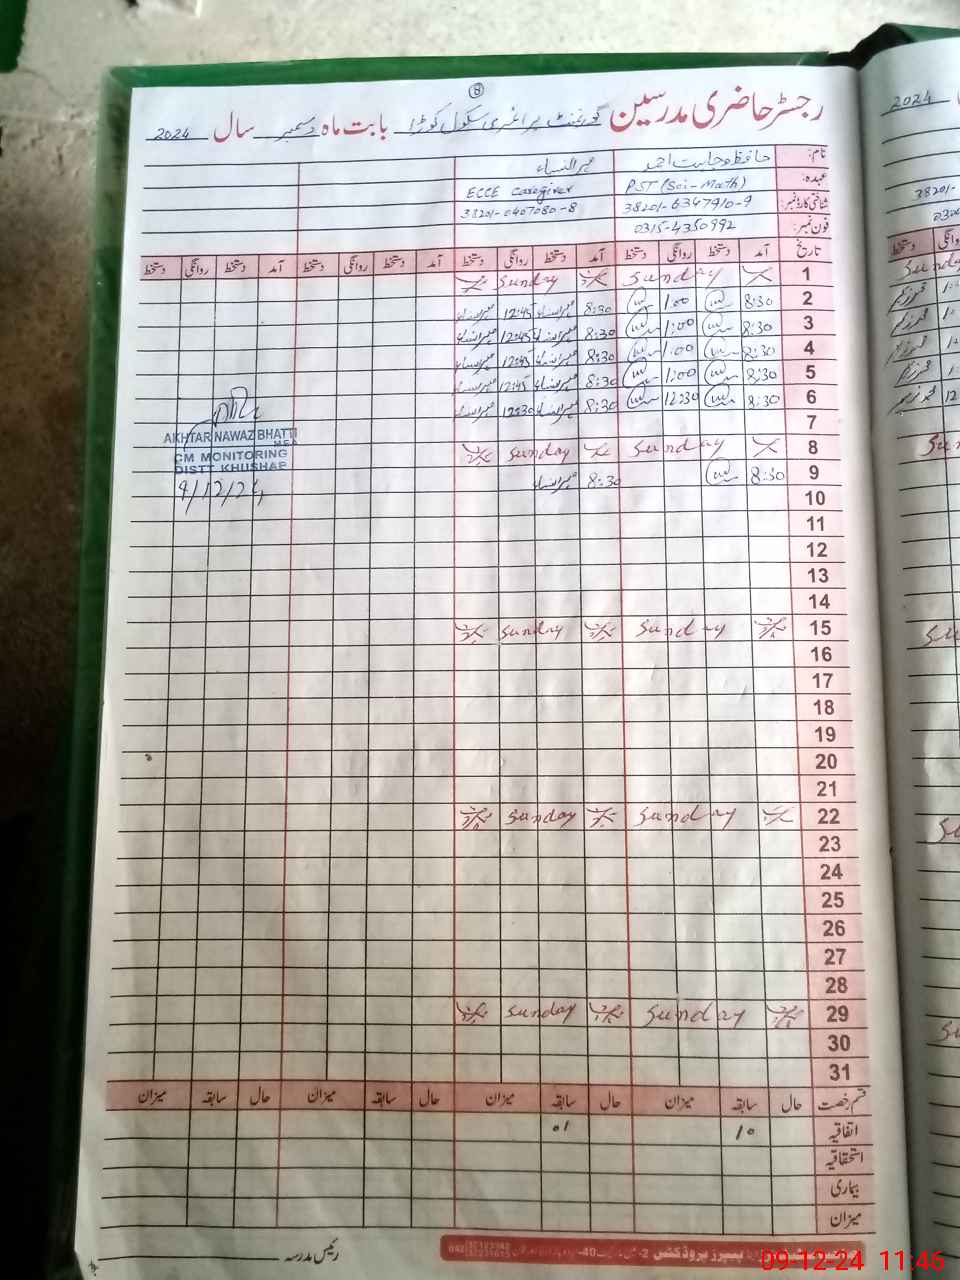 8
رجسٹر حاضری مدرسین گورنمنٹ پرائمری سکول کوڑا بابت ماہ دسمبر سال 2024
نام: حافظ وجاہت احمد مہرالنساء
عہدہ: PST (Sci-Math) ECCE Caregiver
شناختی کارڈ نمبر: 38201-6347910-9 38201-0407080-8
فون نمبر: 0315-4350992
تاریخ آمد دستخط روانگی دستخط آمد دستخط روانگی دستخط آمد دستخط روانگی دستخط آمد دستخط روانگی دستخط
1 Sunday Sunday
2 8:30 1:00 8:30 مہرالنساء 12:45 مہرالنساء
3 8:30 1:00 8:30 مہرالنساء 12:45 مہرالنساء
4 8:30 1:00 8:30 مہرالنساء 12:45 مہرالنساء
5 8:30 1:00 8:30 مہرالنساء 12:45 مہرالنساء
6 8:30 12:30 8:30 مہرالنساء 12:30 مہرالنساء
7
8 Sunday Sunday
9 8:30 8:30 مہرالنساء
10
11
12
13
14
15 Sunday Sunday
16
17
18
19
20
21
22 Sunday Sunday
23
24
25
26
27
28
29 Sunday Sunday
30
31
AKHTAR NAWAZ BHATTI
MEA
CM MONITORING
DISTT KHUSHAB
9/12/24
قسم رخصت حال سابقہ میزان حال سابقہ میزان حال سابقہ میزان حال سابقہ میزان
اتفاقیہ 10 01
استحقاقیہ
بیماری
میزان
رئیس مدرسہ
09-12-24 11:46